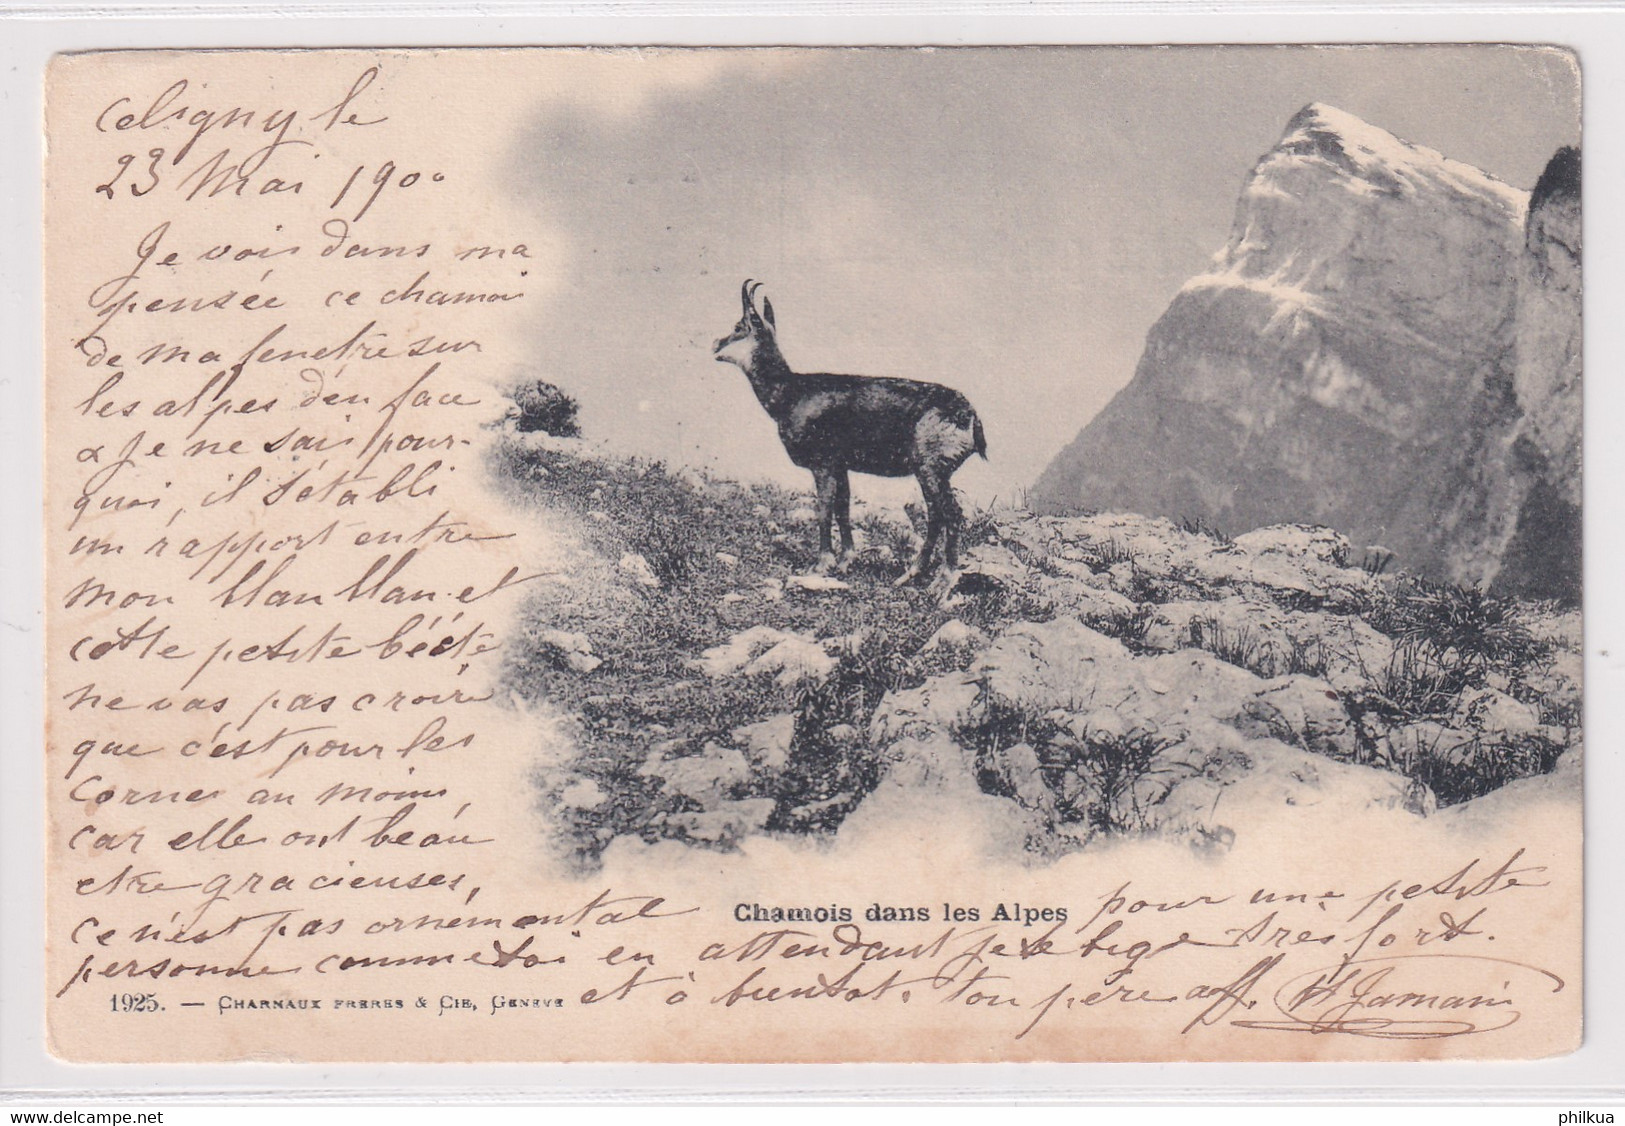 Celigny le
23 Mai 1900
Je vois dans ma
pensée ce chamois
de ma fenetre sur
les alpes d'en face
& Je ne sais pour-
quoi, il s'établi
un rapport entre
mon et
cette petite bééte
ne vas pas croire
que c'est pour les
cornes au moins
car elle ont beau
etre gracieuses,
ce n'est pas ornémental pour une petite
personne comme toi en attendant je te bige très fort.
et à bientot. ton père aff. Jamain
Chamois dans les Alpes
1925. — CHARNAUX FRERES & CIE, GENEVE
delcampe.net
philkua